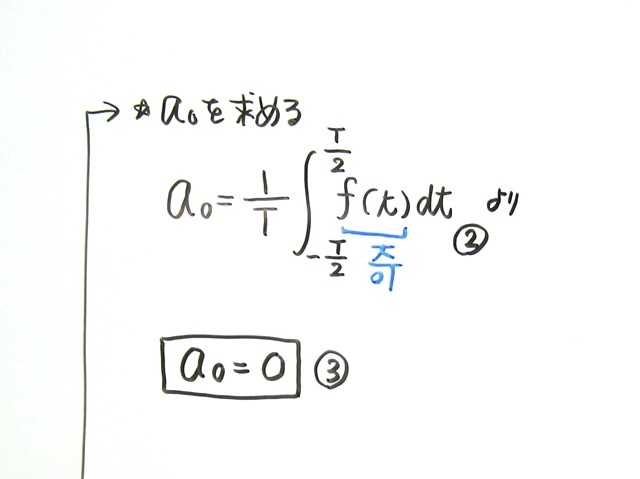 ☆ a₀を求める
a₀ = 1/T ∫_{-T/2}^{T/2} f(t)dt より ②
a₀ = 0 ③